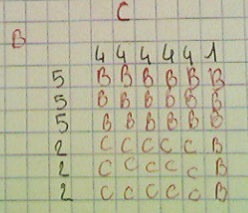 C
B
4 4 4 4 4 1
5 B B B B B B
5 B B B B B B
5 B B B B B B
2 C C C C C B
2 C C C C C B
2 C C C C C B